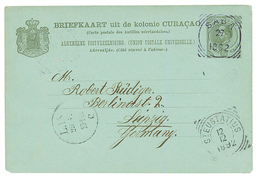 BRIEFKAART uit de kolonie CURAÇAO
(Carte postale des Antilles néerlandaises)
ALGEMEENE POSTVEREENIGING (UNION POSTALE UNIVERSELLE)
Adreszijde. (Côté réservé à l'adresse.)
SABA
27
1892
Mr. Robert Rüdiger.
Berlinerstr. 2.
Leipzig
Germany.
ST EUSTATIUS
12
12
1892